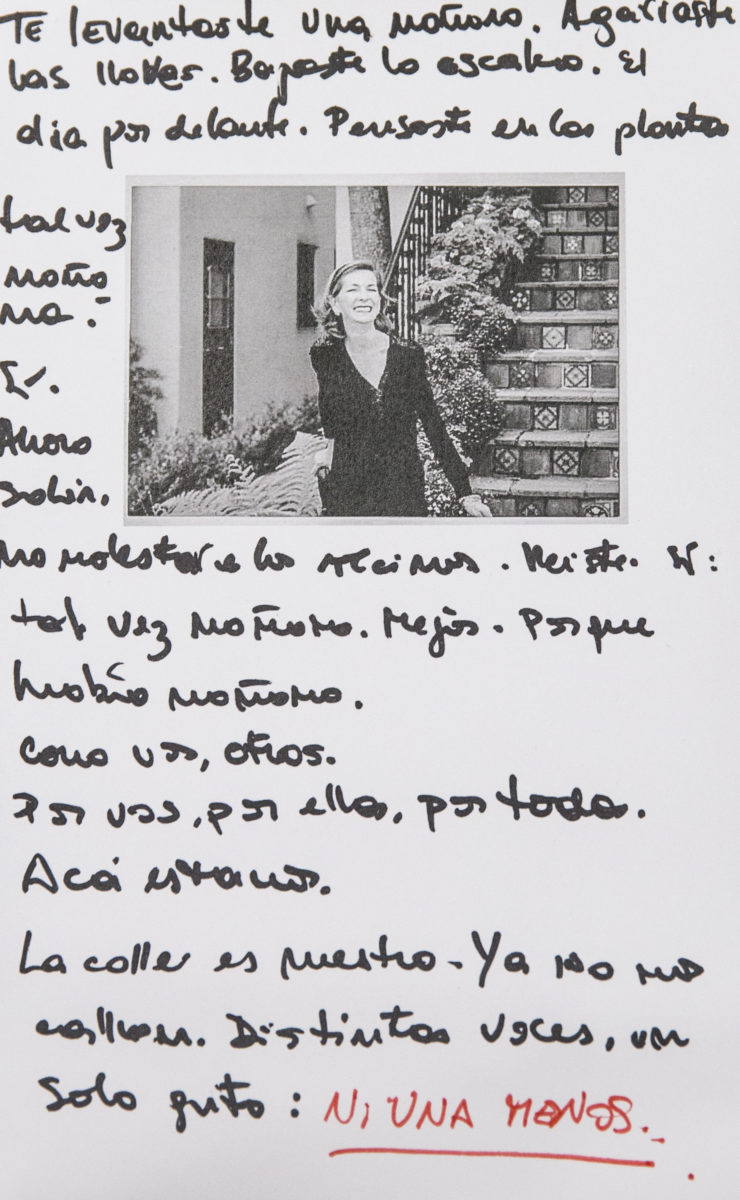 Te levantaste una mañana. Agarraste
las llaves. Bajaste la escalera. El
día por delante. Pensaste en las plantas
tal vez
maña
na.
Ahora
salir.
no molestar a los vecinos. Reíste.
tal vez mañana. Mejor. Porque
había mañana.
Como vos, otras.
Por vos, por ellas, por todas.
Acá estamos.
La calle es nuestra. Ya no nos
callan. Distintas voces, un
solo grito: NI UNA MENOS.